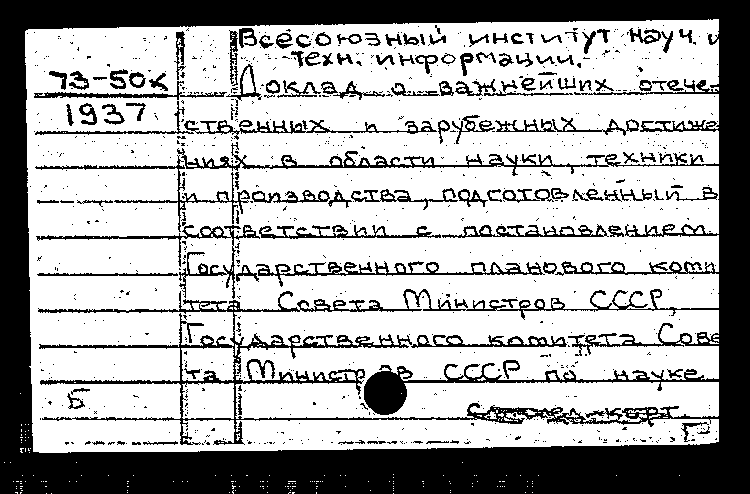 Всесоюзный институт науч. и
техн. информации.
73-50к
Доклад о важнейших отече-
1937
ственных и зарубежных достиже
ниях в области науки, техники
и производства, подготовленный в
соответствии с постановлением
Государственного планового коми
тета Совета Министров СССР,
Государственного комитета Сове
та Министров СССР по науке
Б